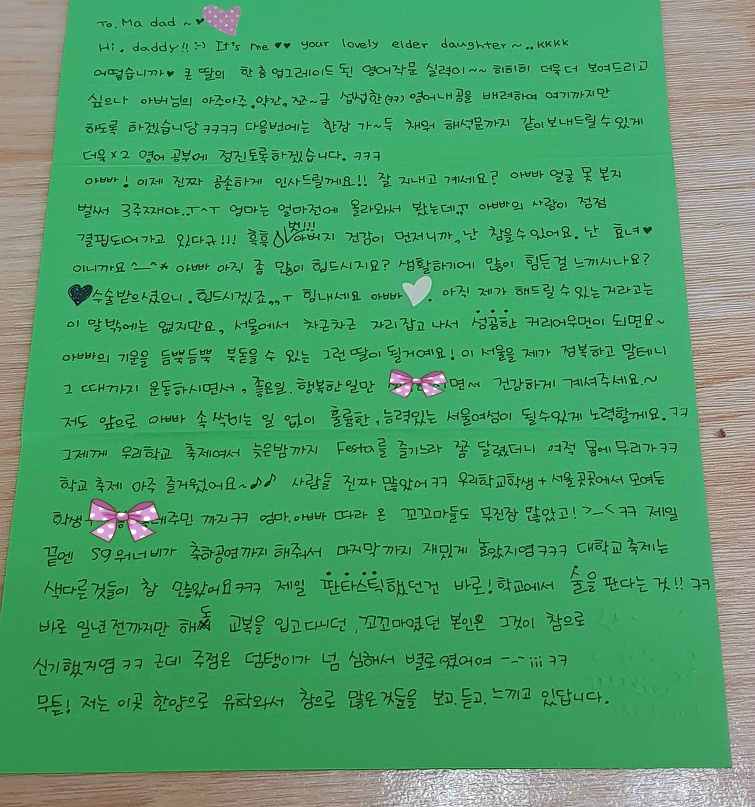 To. Ma dad ~♥
Hi. daddy!! :-) It's me ♥♥ your lovely elder daughter ~..kkkk
어떻습니까♥ 큰 딸의 한층 업그레이드 된 영어작문 실력이~~ 히히히 더욱 더 보여드리고
싶으나 아버님의 아주아주.약간.쪼~금 섭섭한(ㅋㅋ) 영어내공을 배려하여 여기까지만
하도록 하겠습니당 ㅋㅋㅋㅋ 다음번에는 한장 가~득 채워 해석문까지 같이 보내드릴 수 있게
더욱×2 영어 공부에 정진토록하겠습니다. ㅋㅋㅋ
아빠! 이제 진짜 공손하게 인사드릴께요!! 잘 지내고 계세요? 아빠 얼굴 못 본지
벌써 3주째야..ㅜ^ㅜ 엄마는 얼마전에 올라와서 봤는데ㅠ 아빠의 사랑이 점점
결핍되어가고 있다규!!! 흑흑 벗!!! 아버지 건강이 먼저니까, 난 참을수있어요. 난 효녀♥
이니까요^__^* 아빠 아직 좀 많이 힘드시지요? 생활하기에 많이 힘든걸 느끼시나요?
수술받으셨으니. 힘드시겠죠,,ㅜ 힘내세요 아빠. 아직 제가 해드릴 수 있는거라고는
이 말밖에는 없지만요, 서울에서 차근차근 자리잡고 나서 성공한 커리어우먼이 되면요~
아빠의 기운을 듬뿍듬뿍 북돋을 수 있는 그런 딸이 될거예요! 이 서울을 제가 정복하고 말테니
그 때까지 운동하시면서, 좋은일. 행복한일만 면서 건강하게 계셔주세요.~
저도 앞으로 아빠 속 썩이는 일 없이 훌륭한, 능력있는 서울여성이 될수있게 노력할게요.ㅋㅋ
그제께 우리학교 축제여서 늦은밤까지 Festa를 즐기느라 쫌 달렸더니 여적 몸에 무리가ㅋㅋ
학교 축제 아주 즐거웠어요~♪♪ 사람들 진짜 많았어ㅋㅋ 우리학교학생+서울곳곳에서 모여든
학생 주민 까지ㅋㅋ 엄마.아빠 따라 온 꼬꼬마들도 무진장 많았고! >_< ㅋㅋ 제일
끝엔 SG워너비가 축하공연까지 해줘서 마지막까지 재밌게 놀았지염ㅋㅋㅋ 대학교축제는
색다른것들이 참 많았어요ㅋㅋㅋ 제일 판타스틱했던건 바로! 학교에서 술을 판다는 것!! ㅋㅋ
바로 일년 전까지만 해도 교복을 입고다니던, 꼬꼬마였던 본인은 그것이 참으로
신기했지염 ㅋㅋ 근데 주점은 덤탱이가 넘 심해서 별로였어여 -_-;;; ㅋㅋ
무튼! 저는 이곳 한양으로 유학와서 참으로 많은것들을 보고.듣고.느끼고 있답니다.